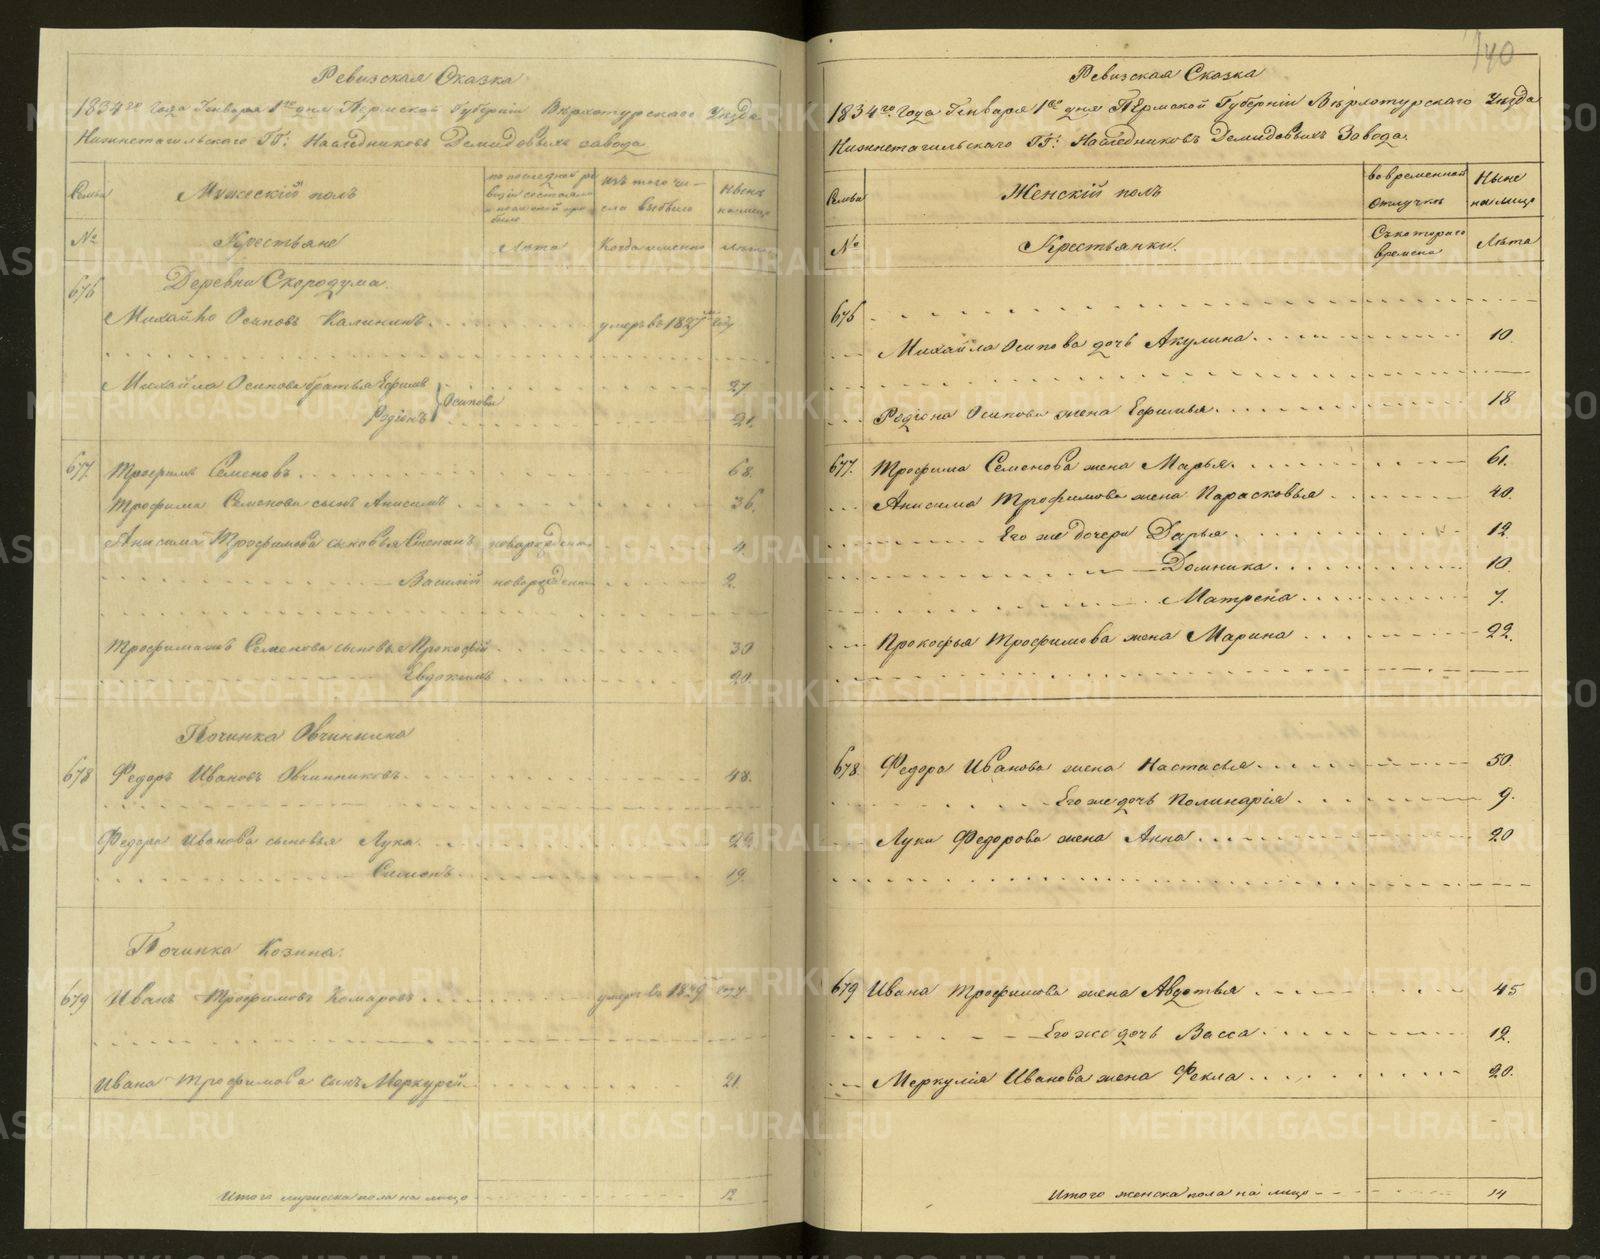 140
Ревизская Сказка
1834го Года Генваря 1го дня Пермской Губернiи Верхотурскаго Уезда
Нижнетагильскаго ГГ: Наследниковъ Демидовыхъ завода
Семьи
Мужескiй полъ
по последней ре
визiи состояло
из того чи-
сла выбыло
Ныне
на лицо
№
Крестьяне
Лета
Когда именно
Лета
Деревни Скородума.
676
Михайло Осиповъ Калининъ. умеръ въ 1827 году
Михайла Осипова братья Ефимъ 27
Родiонъ } Осиповы 21.
677. Трофимъ Семеновъ 68.
Трофима Семенова сынъ Анисимъ 36.
Анисима Трофимова сыновья Степанъ новорожденъ 4.
Василiй новорожденъ 2.
Трофима Семенова сыновья Прокофiй 30
Евдокимъ 20.
Починка Овчинина
678 Федоръ Ивановъ Овчинниковъ. 48.
Федора Иванова сыновья Лука. 22
Симонъ. 19.
Починка Козина.
679 Иванъ Трофимовъ Комаровъ умеръ въ 1829 году
Ивана Трофимова сынъ Меркурiй 21.
Итого мужеска пола на лицо 12
Ревизская Сказка
1834го Года Генваря 1го дня Пермской Губернiи Верхотурскаго Уезда
Нижнетагильскаго ГГ: Наследниковъ Демидовыхъ Завода.
Семьи
Женскiй полъ
во временной
отлучке
Ныне
на лицо
№
Крестьянки.
Съ котораго
времени
Лета
676
Михайла Осипова дочь Акулина 10.
Родiона Осипова жена Ефимья 18
677. Трофима Семенова жена Марья. 61.
Анисима Трофимова жена Парасковья 40.
Его же дочери Дарья. 12.
Домника. 10.
Матрена 7.
Прокофья Трофимова жена Марина 22.
678. Федора Иванова жена Настасья 50.
Его же дочь Полинарiя. 9.
Луки Федорова жена Анна 20
679 Ивана Трофимова жена Авдотья 45
Его же дочь Васса 12.
Меркулiя Иванова жена Фекла 20.
Итого женска пола на лицо 14
METRIKI.GASO-URAL.RU